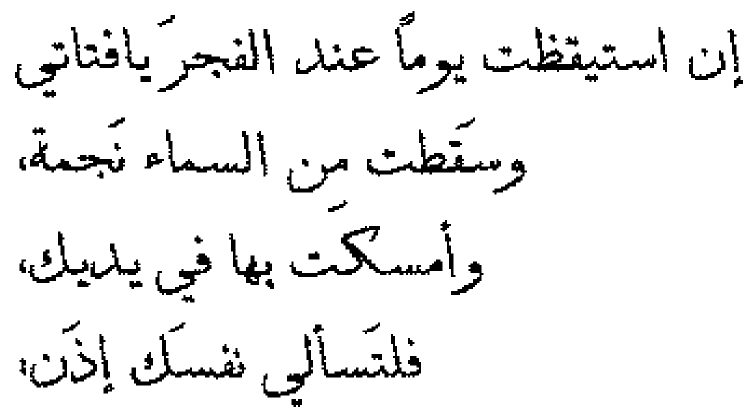 إن استيقظت يوماً عند الفجرَ يافتاتي
وسقَطت مِن السماء نَجمة،
وأمسكَت بها في يديك،
فلتَسألي نفسَك إذَن: